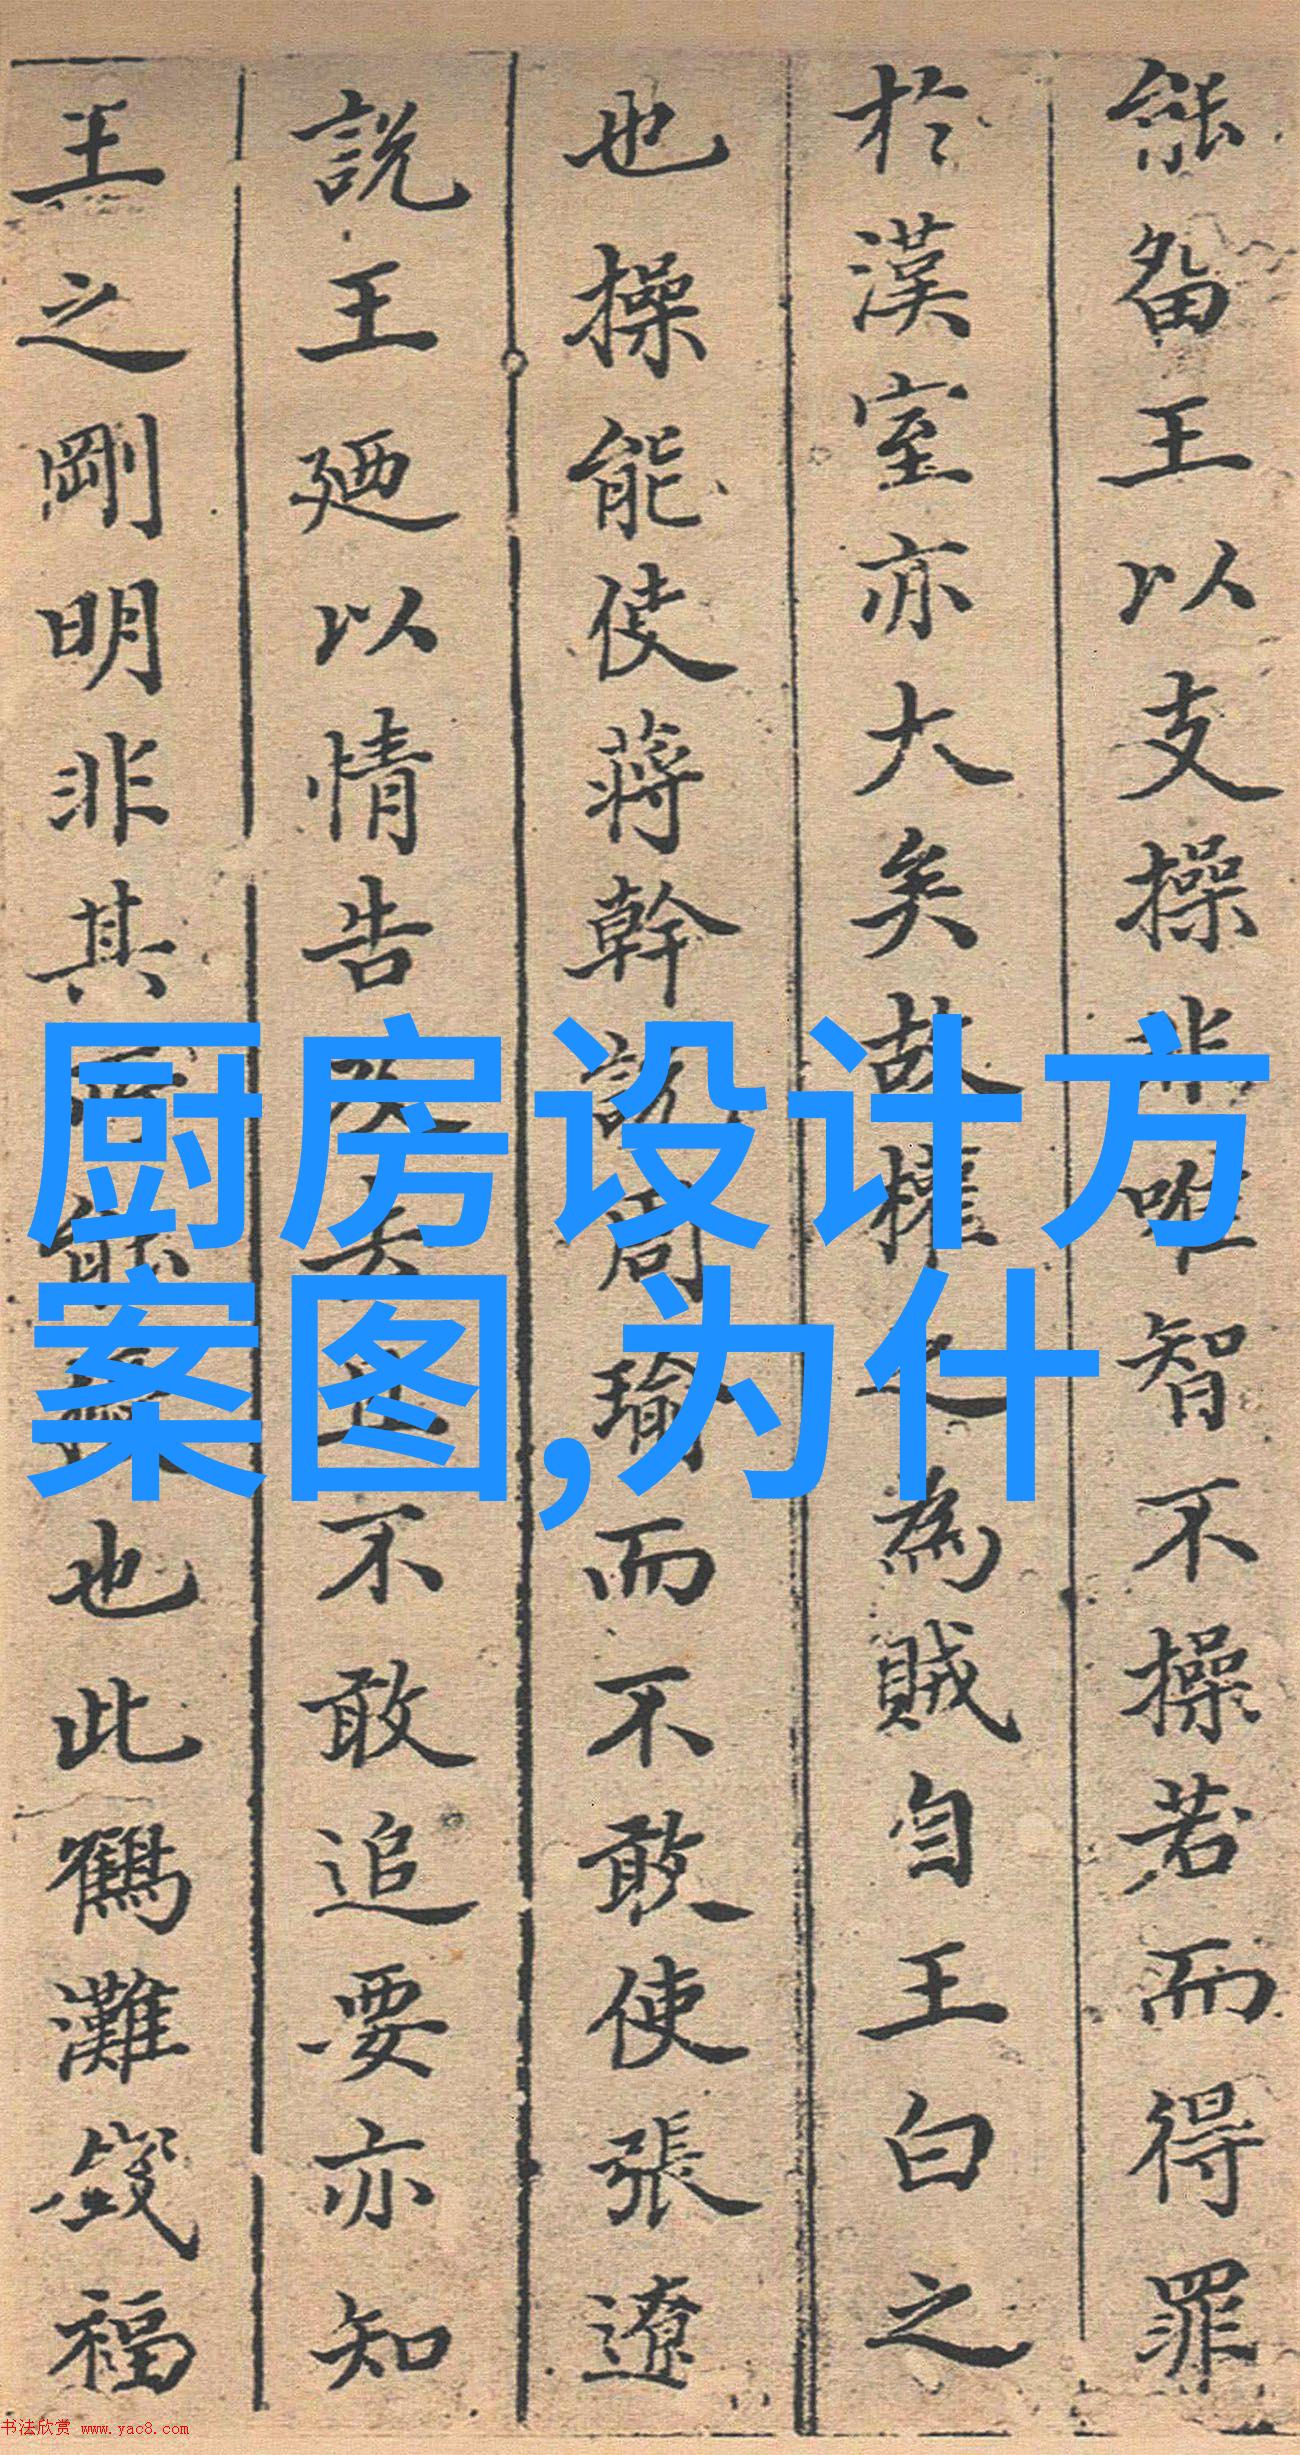 能留王以支操非唯智不操若而得罪
於漢室亦大矣故權之為賊自王白之
也操能使蔣幹說周瑜而不敢使張遼
說王廼以情告及去止不敢追要亦知
王之剛明非其所能也此鶴灘錢福
厨房设计方
案图,为什
书法欣赏 www.yac8.com